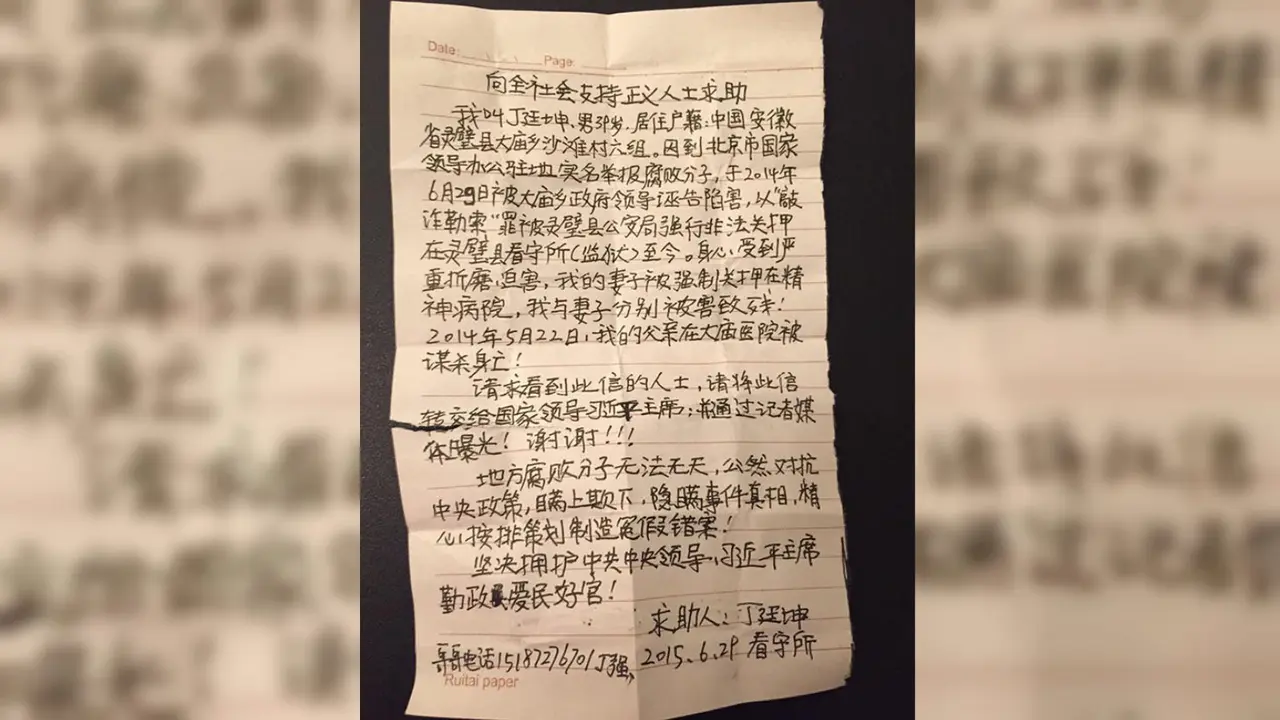 Date: Page
向全社会支持正义人士求助
我叫丁廷坤、男39岁，居住户籍：中国安徽
省灵璧县大庙乡沙滩村六组。因到北京市国家
领导办公驻地实名举报腐败分子，于2014年
6月29日被大庙乡政府领导诬告陷害，以“敲
诈勒索”罪被灵璧县公安局强行非法关押
在灵璧县看守所（监狱）至今。身心受到严
重折磨迫害，我的妻子被强制关押在精
神病院，我与妻子分别被害致残！
2014年5月22日，我的父亲在大庙医院被
谋杀身亡！
请求看到此信的人士，请将此信
转交给国家领导习近平主席；并通过记者媒
体曝光！谢谢！！！
地方腐败分子无法无天，公然对抗
中央政策，瞒上欺下，隐瞒事件真相，精
心按排策划制造冤假错案！
坚决拥护中共中央领导，习近平主席
勤政爱民好官！
求助人：丁廷坤
哥哥电话15187276701丁强，2015.6.29 看守所
Ruitai paper